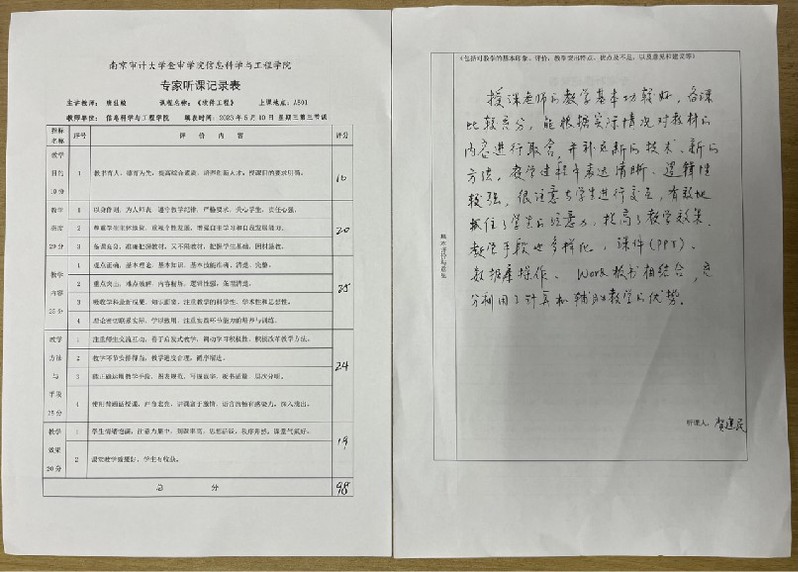 南京审计大学金审学院信息科学与工程学院
专家听课记录表
主讲教师： 课程名称：《软件工程》 上课地点：A501
教师单位： 信息科学与工程学院 填表时间：2023 年 5 月 10 日 星期三第三节课
指标名称 序号 评 价 内 容 评分
教学目的 10分
1 教书育人，德育为先，提高综合素质，培养创新人才；授课目的要求明确。 10
教学态度 20分
1 以身作则，为人师表，遵守教学纪律，严格要求，关心学生，责任心强。
2 尊重学生主体地位，重视个性发展，增强自主学习和自我发展能力。 20
3 备课充分，准确把握教材，又不拘教材，把握学生基础，因材施教。
教学内容 25分
1 观点正确，基本理论、基本知识、基本技能准确、清楚、完整。
2 重点突出，难点破解，内容精炼，逻辑性强，条理清楚。 25
3 吸收学科最新成果，知识面宽，注重教学的科学性、学术性和思想性。
4 理论密切联系实际，学以致用，注重实践环节能力的培养与训练。
教学方法与手段 25分
1 注重师生交流互动，善于启发式教学，调动学习积极性，积极改革教学方法。
2 教学环节安排得当，教学进度合理，循序渐进。 24
3 能正确运用教学手段，图表规范，写画工整，板书适量，层次分明。
4 使用普通话授课，声音宏亮，讲课富于激情，语言流畅有感染力，深入浅出。
教学效果 20分
1 学生情绪饱满，注意力集中，师生和谐，思想活跃，秩序井然，课堂气氛好。 19
2 课堂教学质量好，学生有收获。
总 分 98
（包括对教学的基本印象、评价，教学突出特点、优点及不足，以及意见和建议等）
授课老师的教学基本功较好，备课
比较充分，能根据实际情况对教材的
内容进行取舍，并补充新的技术、新的
方法，教学过程中表达清晰、逻辑性
较强，很注意与学生进行交互，有效地
抓住了学生的注意力，提高了教学效果。
教学手段也多样化，课件（PPT）、
数据库操作、Work 板书相结合，充
分利用了计算机辅助教学的优势。
听课人：